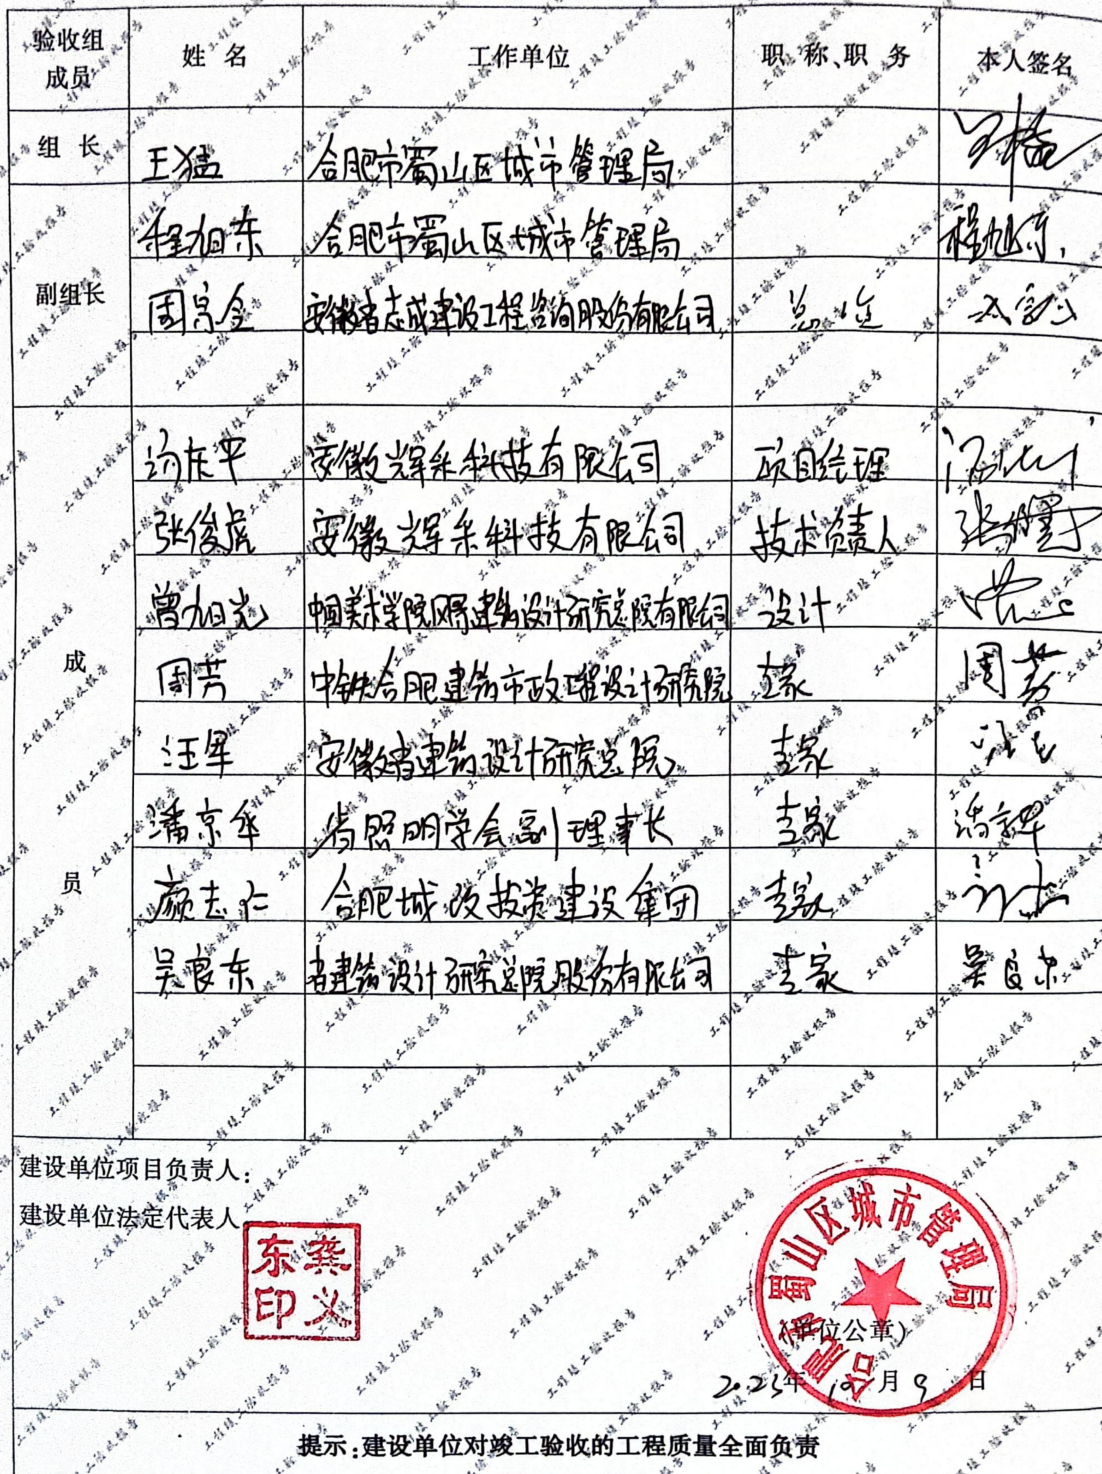 验收组成员 姓 名 工作单位 职 称、职 务 本人签名
组 长 王猛 合肥市蜀山区城市管理局
副组长 程旭东 合肥市蜀山区城市管理局 程旭东
周宗金 安徽省志成建设工程咨询股份有限公司 总监
成员 汤东平 安徽辉采科技有限公司 项目经理
张俊虎 安徽辉采科技有限公司 技术负责人
曾旭光 中国美术学院风景建筑设计研究总院有限公司 设计
周芳 中铁合肥建筑市政工程设计研究院 专家 周芳
汪军 安徽省建筑设计研究总院 专家
潘京华 省照明学会副理事长 专家
颜志仁 合肥城改投资建设集团 专家
吴良东 省建筑设计研究总院股份有限公司 专家 吴良东
建设单位项目负责人:
建设单位法定代表人
东龚
印义
合肥市蜀山区城市管理局
(单位公章)
2023年 10 月 9 日
提示:建设单位对竣工验收的工程质量全面负责
工程竣工验收报告